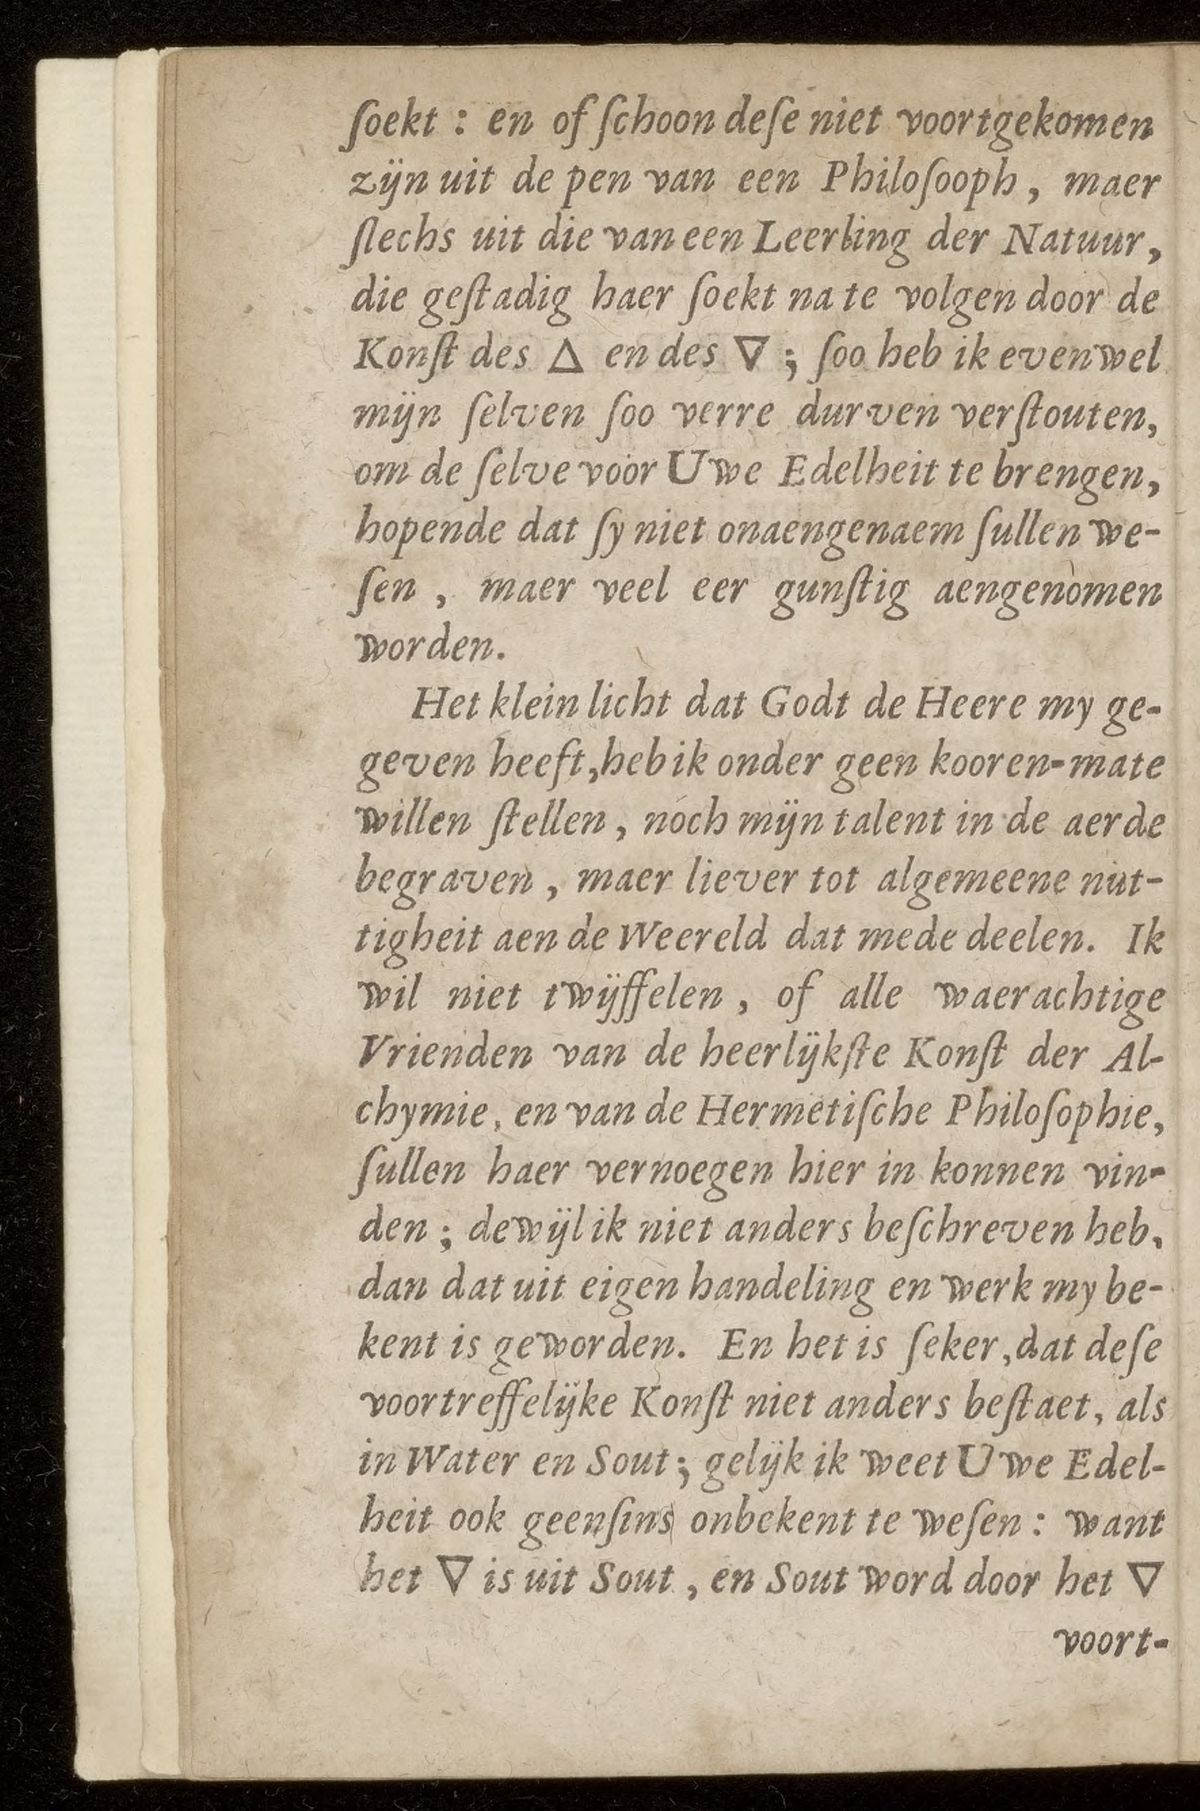 ſoekt : en of ſchoon deſe niet voortgekomen
zijn uit de pen van een Philoſooph, maer
ſlechs uit die van een Leerling der Natuur,
die geſtadig haer ſoekt na te volgen door de
Konſt des △ en des ▽ ; ſoo heb ik evenwel
mijn ſelven ſoo verre durven verſtouten,
om de ſelve voor Uwe Edelheit te brengen,
hopende dat ſy niet onaengenaem ſullen we-
ſen, maer veel eer gunſtig aengenomen
worden.
Het klein licht dat Godt de Heere my ge-
geven heeft, heb ik onder geen kooren-mate
willen ſtellen, noch mijn talent in de aerde
begraven, maer liever tot algemeene nut-
tigheit aen de Weereld dat mede deelen. Ik
wil niet twijffelen, of alle waerachtige
Vrienden van de heerlijkſte Konſt der Al-
chymie, en van de Hermetiſche Philoſophie,
ſullen haer vernoegen hier in konnen vin-
den ; dewijl ik niet anders beſchreven heb,
dan dat uit eigen handeling en werk my be-
kent is geworden. En het is ſeker, dat deſe
voortreffelijke Konſt niet anders beſtaet, als
in Water en Sout ; gelijk ik weet Uwe Edel-
heit ook geenſins onbekent te weſen : want
het ▽ is uit Sout, en Sout word door het ▽
voort-